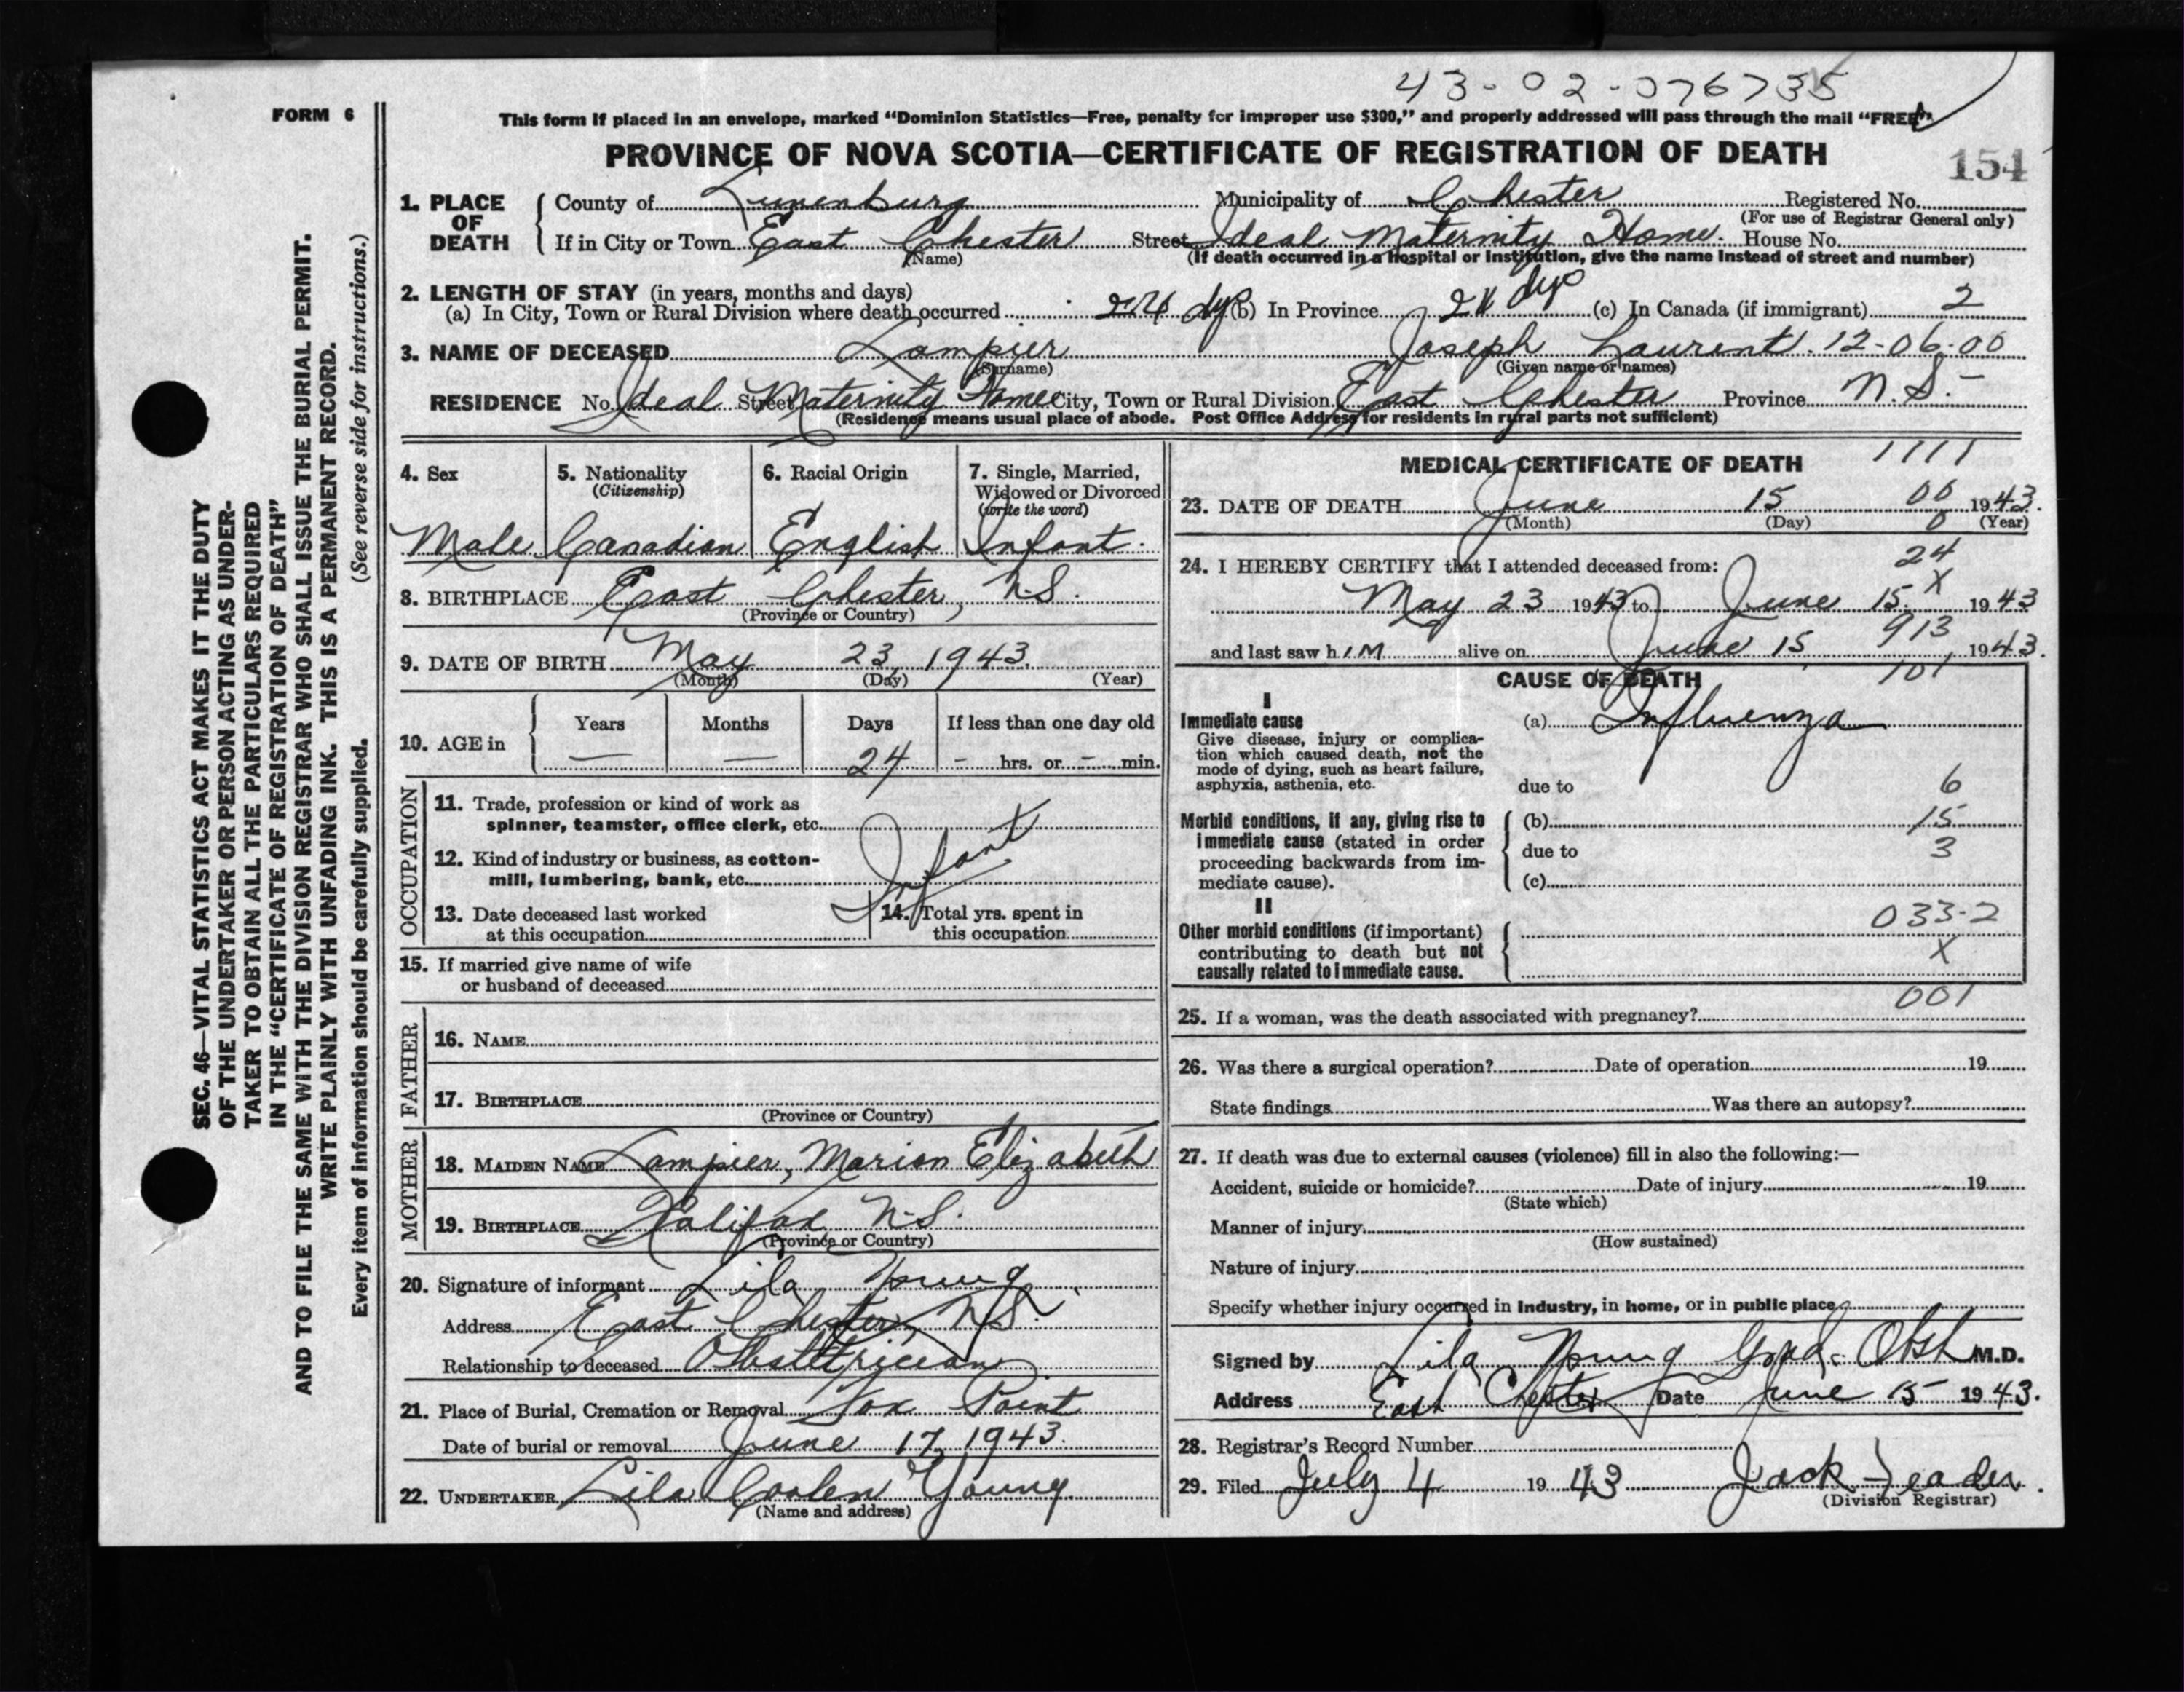 43-02-076735
FORM 6
This form if placed in an envelope, marked "Dominion Statistics—Free, penalty for improper use $300," and properly addressed will pass through the mail "FREE"
PROVINCE OF NOVA SCOTIA—CERTIFICATE OF REGISTRATION OF DEATH
154
1. PLACE OF DEATH County of Lunenburg Municipality of Chester Registered No.
(For use of Registrar General only)
If in City or Town East Chester Street Ideal Maternity Home. House No.
(Name) (If death occurred in a hospital or institution, give the name instead of street and number)
2. LENGTH OF STAY (in years, months and days)
(a) In City, Town or Rural Division where death occurred 24 dys (b) In Province 24 dys (c) In Canada (if immigrant) 2
3. NAME OF DECEASED Lampier Joseph Laurent. 12-06-00
(Surname) (Given name or names)
RESIDENCE No. Ideal Street Maternity Home City, Town or Rural Division East Chester Province N.S.-
(Residence means usual place of abode. Post Office Address for residents in rural parts not sufficient)
4. Sex 5. Nationality (Citizenship) 6. Racial Origin 7. Single, Married, Widowed or Divorced (write the word)
Male Canadian English Infant.
8. BIRTHPLACE East Chester, N.S.
(Province or Country)
9. DATE OF BIRTH May 23, 1943.
(Month) (Day) (Year)
10. AGE in Years Months Days If less than one day old
— — 24 - hrs. or - min.
OCCUPATION
11. Trade, profession or kind of work as
spinner, teamster, office clerk, etc.
Infant
12. Kind of industry or business, as cotton-
mill, lumbering, bank, etc.
13. Date deceased last worked
at this occupation
14. Total yrs. spent in
this occupation
15. If married give name of wife
or husband of deceased
FATHER
16. NAME
17. BIRTHPLACE
(Province or Country)
MOTHER
18. MAIDEN NAME Lampier, Marion Elizabeth
19. BIRTHPLACE Halifax N.S.
(Province or Country)
20. Signature of informant Lila Young
Address East Chester, N.S.
Relationship to deceased Obstetrician
21. Place of Burial, Cremation or Removal Fox Point
Date of burial or removal June 17, 1943.
22. UNDERTAKER Lila Coolen Young
(Name and address)
MEDICAL CERTIFICATE OF DEATH 1111
23. DATE OF DEATH June 15 00 1943.
(Month) (Day) 0 (Year)
24
24. I HEREBY CERTIFY that I attended deceased from:
May 23 1943 to June 15. X 1943
913
and last saw h im alive on June 15, 1943.
CAUSE OF DEATH 101
I
Immediate cause (a) Influenza
Give disease, injury or complica-
tion which caused death, not the
mode of dying, such as heart failure,
asphyxia, asthenia, etc. due to 6
Morbid conditions, if any, giving rise to (b) 15
immediate cause (stated in order due to 3
proceeding backwards from im-
mediate cause). (c)
II
033-2
Other morbid conditions (if important)
contributing to death but not X
causally related to immediate cause.
001
25. If a woman, was the death associated with pregnancy?
26. Was there a surgical operation? Date of operation 19
State findings Was there an autopsy?
27. If death was due to external causes (violence) fill in also the following:—
Accident, suicide or homicide? Date of injury 19
(State which)
Manner of injury
(How sustained)
Nature of injury
Specify whether injury occurred in industry, in home, or in public place
Signed by Lila Young Grad. Obst M.D.
Address East Chester Date June 15 1943.
28. Registrar's Record Number
29. Filed July 4 1943 Jack
(Division Registrar)
SEC. 46—VITAL STATISTICS ACT MAKES IT THE DUTY
OF THE UNDERTAKER OR PERSON ACTING AS UNDER-
TAKER TO OBTAIN ALL THE PARTICULARS REQUIRED
IN THE "CERTIFICATE OF REGISTRATION OF DEATH"
AND TO FILE THE SAME WITH THE DIVISION REGISTRAR WHO SHALL ISSUE THE BURIAL PERMIT.
WRITE PLAINLY WITH UNFADING INK. THIS IS A PERMANENT RECORD.
Every item of information should be carefully supplied. (See reverse side for instructions.)